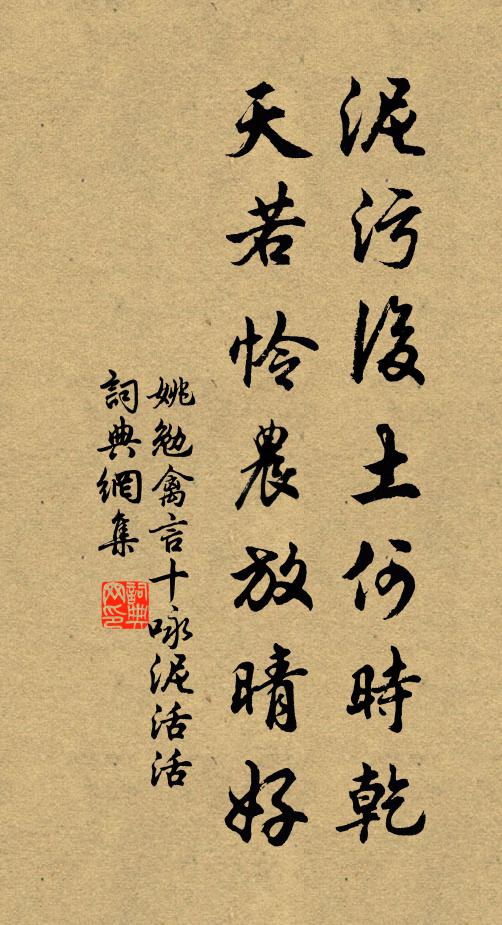 泥污後土何時乾
天若怜農放晴好
姚勉禽言十咏泥活活
詞典網集
詞典
网印